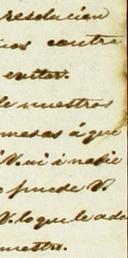 resolucion
ios contra
evitar.
le nuestros
mesas á que
V. ni á nadie
puede V.
V. lo que le ade
nuestro.